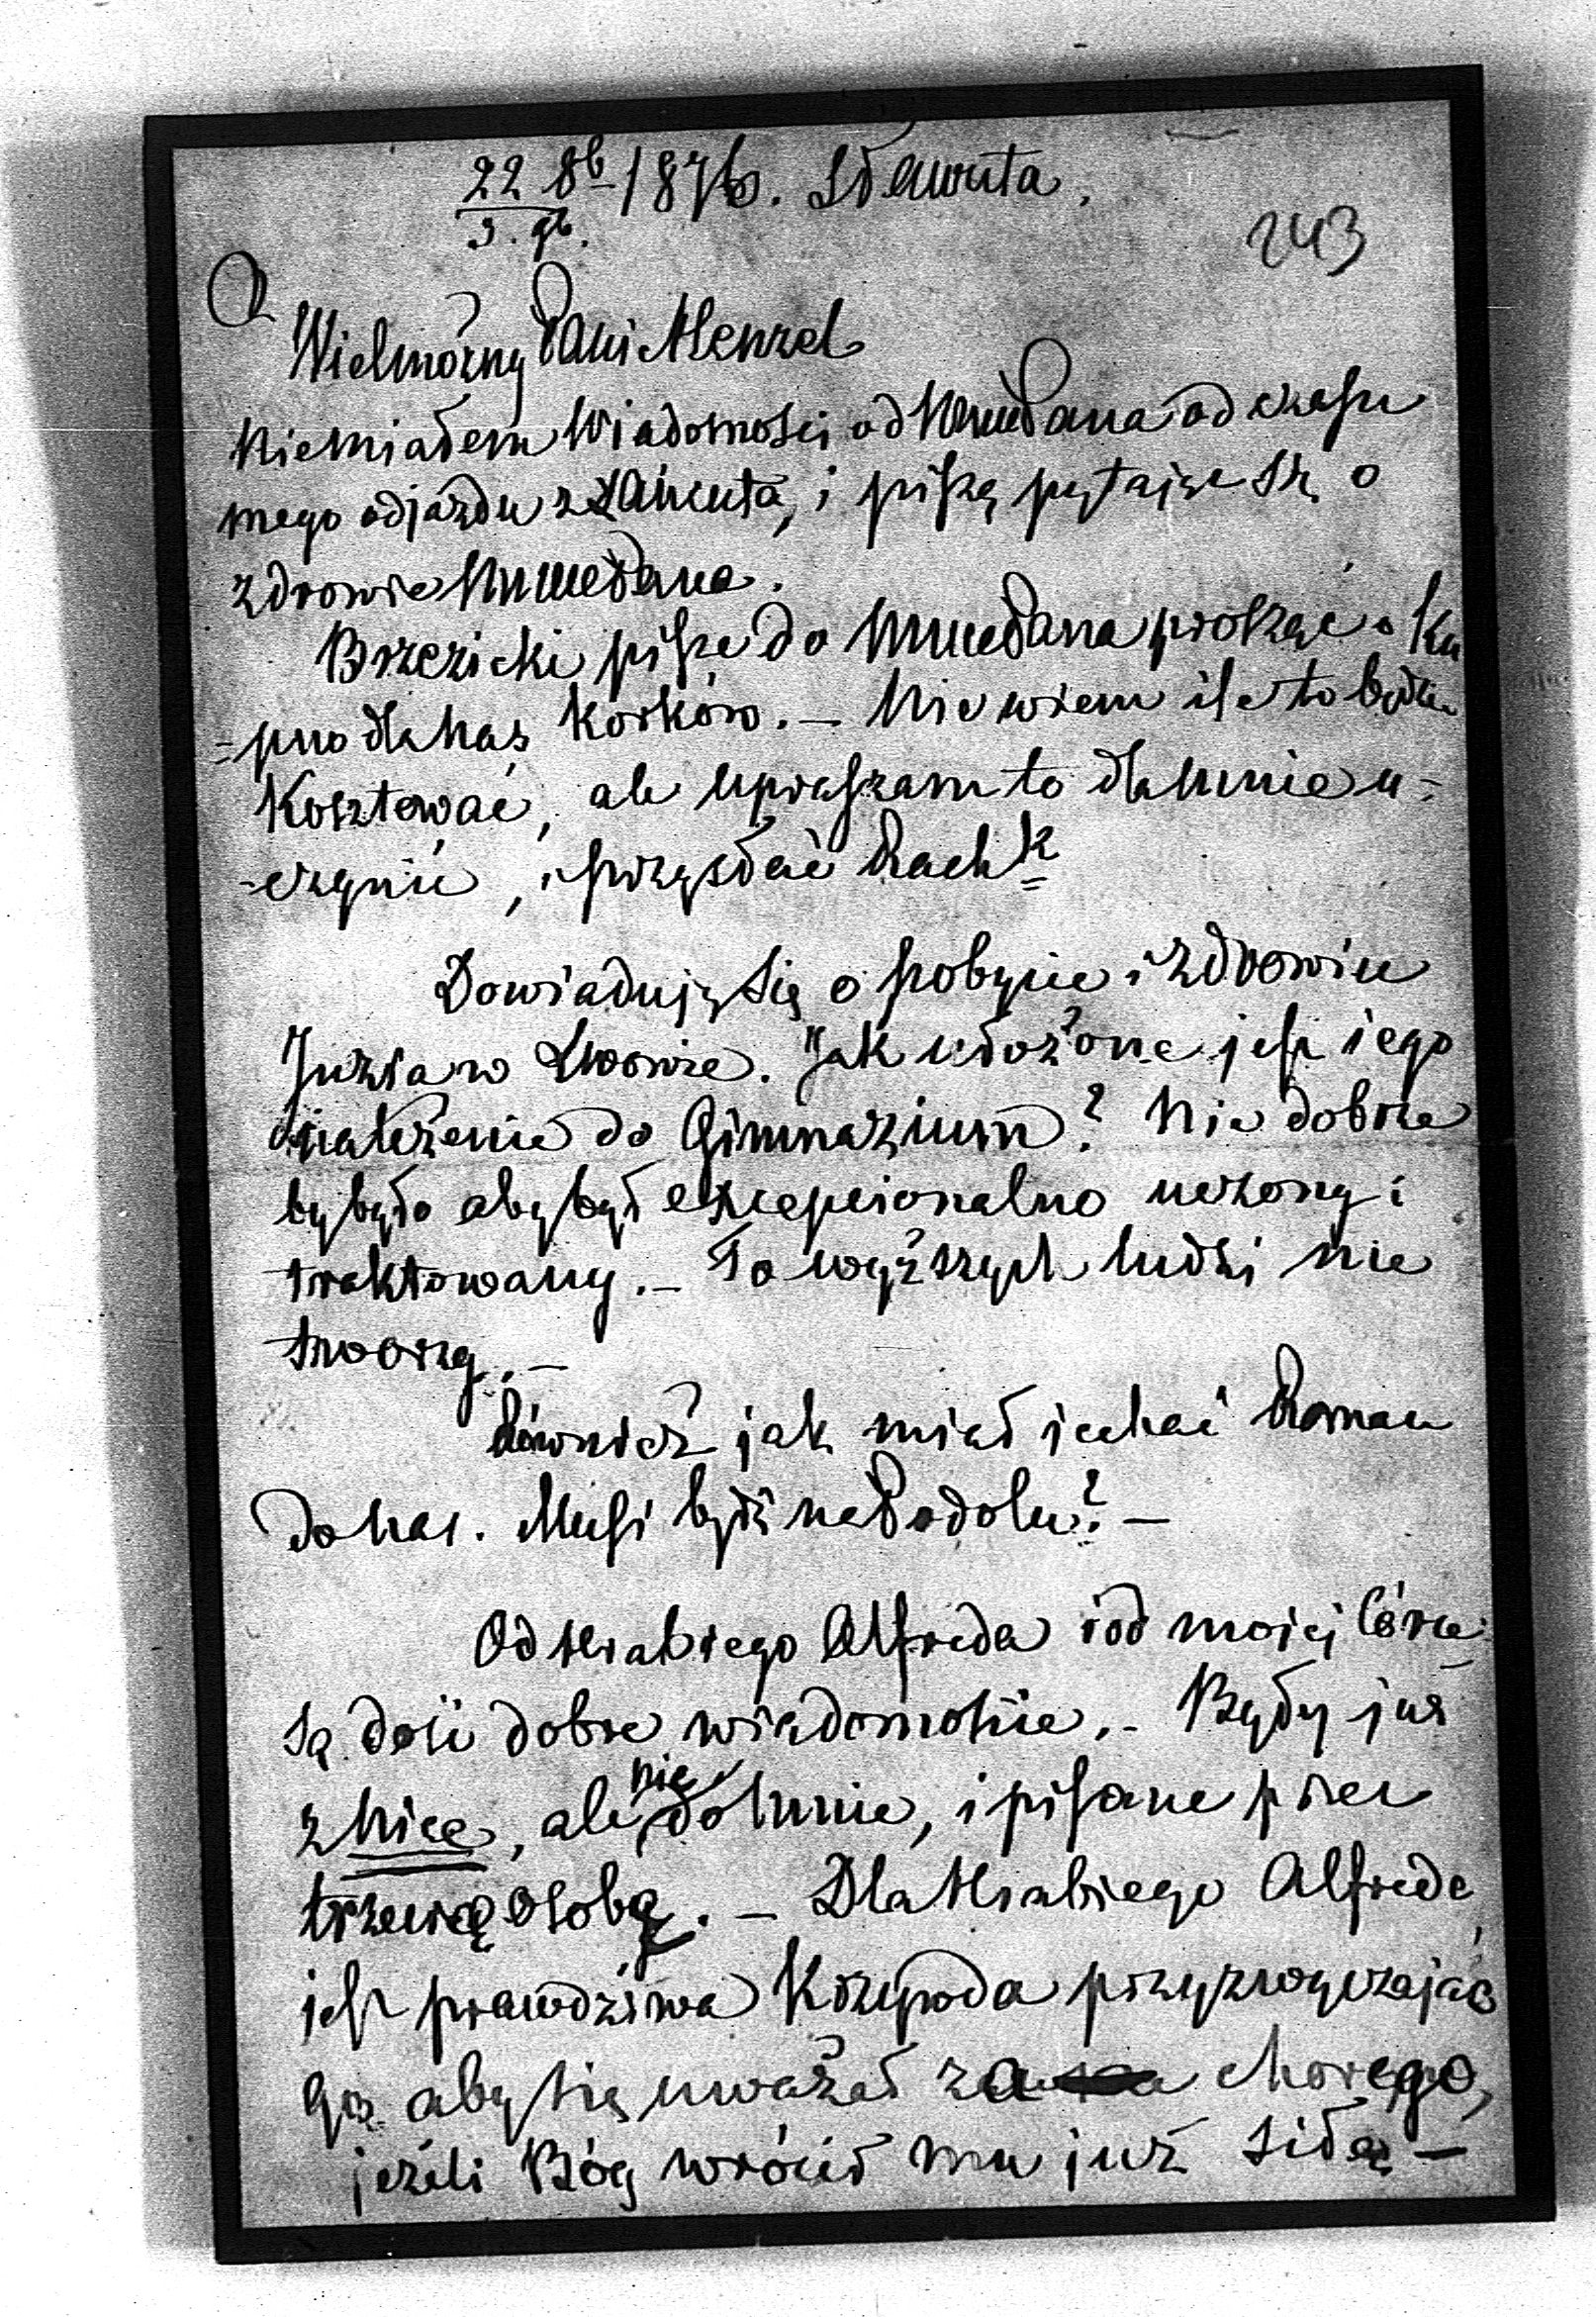 22 8b 1876. Sławuta,
3. 9b.
243
Wielmożny Panie Menzel
Nie miałem Wiadomości od Pana od czasu
mego odjazdu z Łańcuta, i piszę pytając się o
zdrowie Pana.
Brzezicki pisze do Pana prosząc o Ku
=pno dla nas Korków. – Nie wiem ile to będzie
Kosztować, ale upraszam to dla mnie u=
-czynić, i przysłać Rachk
Dowiaduję się o pobycie i zdrowiu
Juzia w Lwowie. Jak ułożone jest iego
należenie do Gimnazium? Nie dobrze
by było aby był excepcionalno uczony i
traktowany. – To wyższych ludzi nie
tworzy. –
Również jak miał jechać Roman
do nas. Musi być na Podolu? –
Od Hrabiego Alfreda i od mojej Córce
Są dość dobre wiadomoście. – Będy już
z Nice, ale nie do mnie, i pisane przez
trzecią osobą. – Dla Hrabiego Alfreda,
jest prawdziwa Krzywda przyzwyczajać
go aby się uważał za chorego,
jeżeli Bóg wrócił mu już siłę –